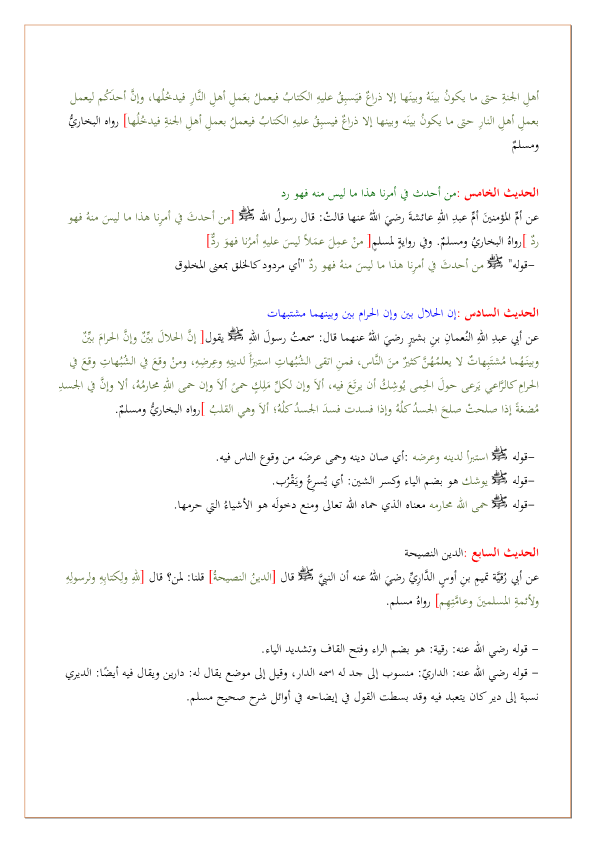 أهلِ الجنةِ حتى ما يكونُ بينَهُ وبينَها إلا ذراعٌ فيَسبِقُ عليهِ الكتابُ فيعملُ بعَملِ أهلِ النَّارِ فيدخُلُها، وإنَّ أحدَكُم ليعمل
بعملِ أهلِ النارِ حتى ما يكونُ بينَه وبينها إلا ذراعٌ فيسبِقُ عليهِ الكتابُ فيعملُ بعملِ أهلِ الجنةِ فيدخُلُها] رواه البخاريُّ
ومسلمٌ
الحديث الخامس :من أحدث في أمرنا هذا ما ليس منه فهو رد
عن أمِّ المؤمنينَ أمِّ عبدِ اللهِ عائشةَ رضيَ اللهُ عنها قالتْ: قال رسولُ الله ﷺ [من أحدثَ في أمرِنا هذا ما ليسَ منهُ فهو
ردٌ ]رواهُ البخاريُ ومسلمٌ. وفي روايةٍ لمسلمٍ[ منْ عمِلَ عمَلاً ليسَ عليهِ أمرُنا فهوَ ردٌّ]
–قوله" ﷺ من أحدثَ في أمرِنا هذا ما ليسَ منهُ فهو ردٌ "أي مردود كالخلق بمعنى المخلوق
الحديث السادس :إن الحلال بين وإن الحرام بين وبينهما مشتبهات
عن أبي عبدِ اللهِ النُعمانِ بنِ بشيرٍ رضيَ اللهُ عنهما قال: سمعتُ رسولَ اللهِ ﷺ يقول[ إنَّ الحلالَ بيِّنٌ وإنَّ الحرامَ بيِّنٌ
وبينَهُما مُشتَبِهاتٌ لا يعلمُهُنَّ كثيرٌ منَ النَّاس، فمنِ اتقى الشُبُهاتِ استبرَأَ لدينِهِ وعِرضِهِ، ومنْ وقعَ في الشُبُهاتِ وقعَ في
الحرامِ كالرَّاعي يَرعى حولَ الحِمى يُوشِكُ أن يرتَعَ فيه، ألاَ وإن لكلِّ مَلِكٍ حمىً ألاَ وإن حمى اللهِ محارمُهُ، ألا وإنَّ في الجسدِ
مُضغةً إذا صلحتْ صلحَ الجسدُ كلُهُ وإذا فسدت فسدَ الجسدُ كلُهُ؛ ألاَ وهي القلبُ ]رواه البخاريُّ ومسلمٌ.
–قوله ﷺ استبرأ لدينه وعرضه :أي صان دينه وحمى عرضَه من وقوع الناس فيه.
–قوله ﷺ يوشك هو بضم الياء وكسر الشين: أي يُسرِعُ ويَقْرُب.
–قوله ﷺ حمى الله محارمه معناه الذي حماه الله تعالى ومنع دخولَه هو الأشياءُ التي حرمها.
الحديث السابع :الدين النصيحة
عن أبي رُقيَّة تميمِ بنِ أوسٍ الدَّارِيِّ رضيَ اللهُ عنه أن النبيَّ ﷺ قال [الدينُ النصيحةُ] قلنا: لمن؟ قال [للهِ ولكتابِهِ ولرسولِهِ
ولأئمةِ المسلمينَ وعامَّتِهِم] رواهُ مسلم.
– قوله رضي الله عنه: رقية: هو بضم الراء وفتح القاف وتشديد الياء.
– قوله رضي الله عنه: الداريّ: منسوب إلى جد له اسمه الدار، وقيل إلى موضع يقال له: دارين ويقال فيه أيضًا: الديري
نسبة إلى دير كان يتعبد فيه وقد بسطت القول في إيضاحه في أوائل شرح صحيح مسلم.